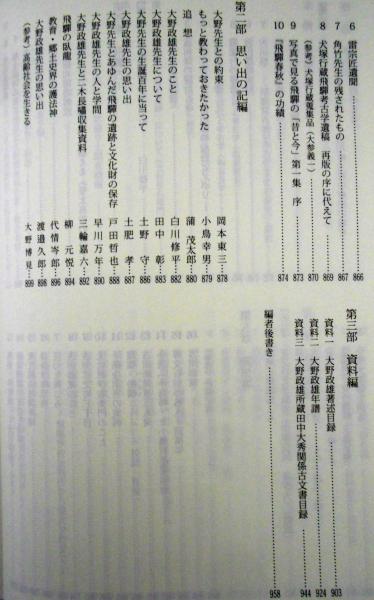 6 雷宗匠遺聞 866
7 角竹先生の残されたもの 867
8 犬塚行蔵飛騨考古学遺稿 再版の序に代えて 869
(参考)犬塚行蔵蒐集品(大参義一) 870
9 写真で見る飛騨の「昔と今」第一集 序 873
10 『飛騨春秋』の功績 874
第二部 思い出の記編
大野先生との約束 岡本東三 878
もっと教わっておきたかった 小鳥幸男 879
追想 蒲茂太郎 880
大野政雄先生のこと 白川修平 882
大野政雄先生について 田中彰 883
大野先生の生誕百年に当って 土野守 886
大野政雄先生の思い出 土肥孝 887
大野先生とあゆんだ飛騨の遺跡と文化財の保存 戸田哲也 888
大野政雄先生の人と学問 早川万年 890
大野政雄先生と二木長嘯収集資料 三輪嘉六 892
飛騨の臥龍 柳元悦 894
教育・郷土史界の護法神 代情岑郎 896
大野政雄先生の思い出 渡邉久郎 898
(参考)高齢社会を生きる 大野博見 899
第三部 資料編
資料一 大野政雄著述目録 903
資料二 大野政雄年譜 924
資料三 大野政雄所蔵田中大秀関係古文書目録 944
編者後書き 958